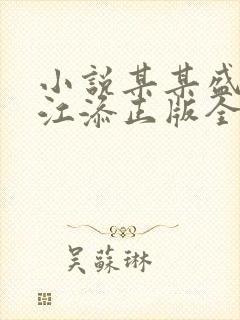 小說某某盛
江添正版全
吴蘇琳